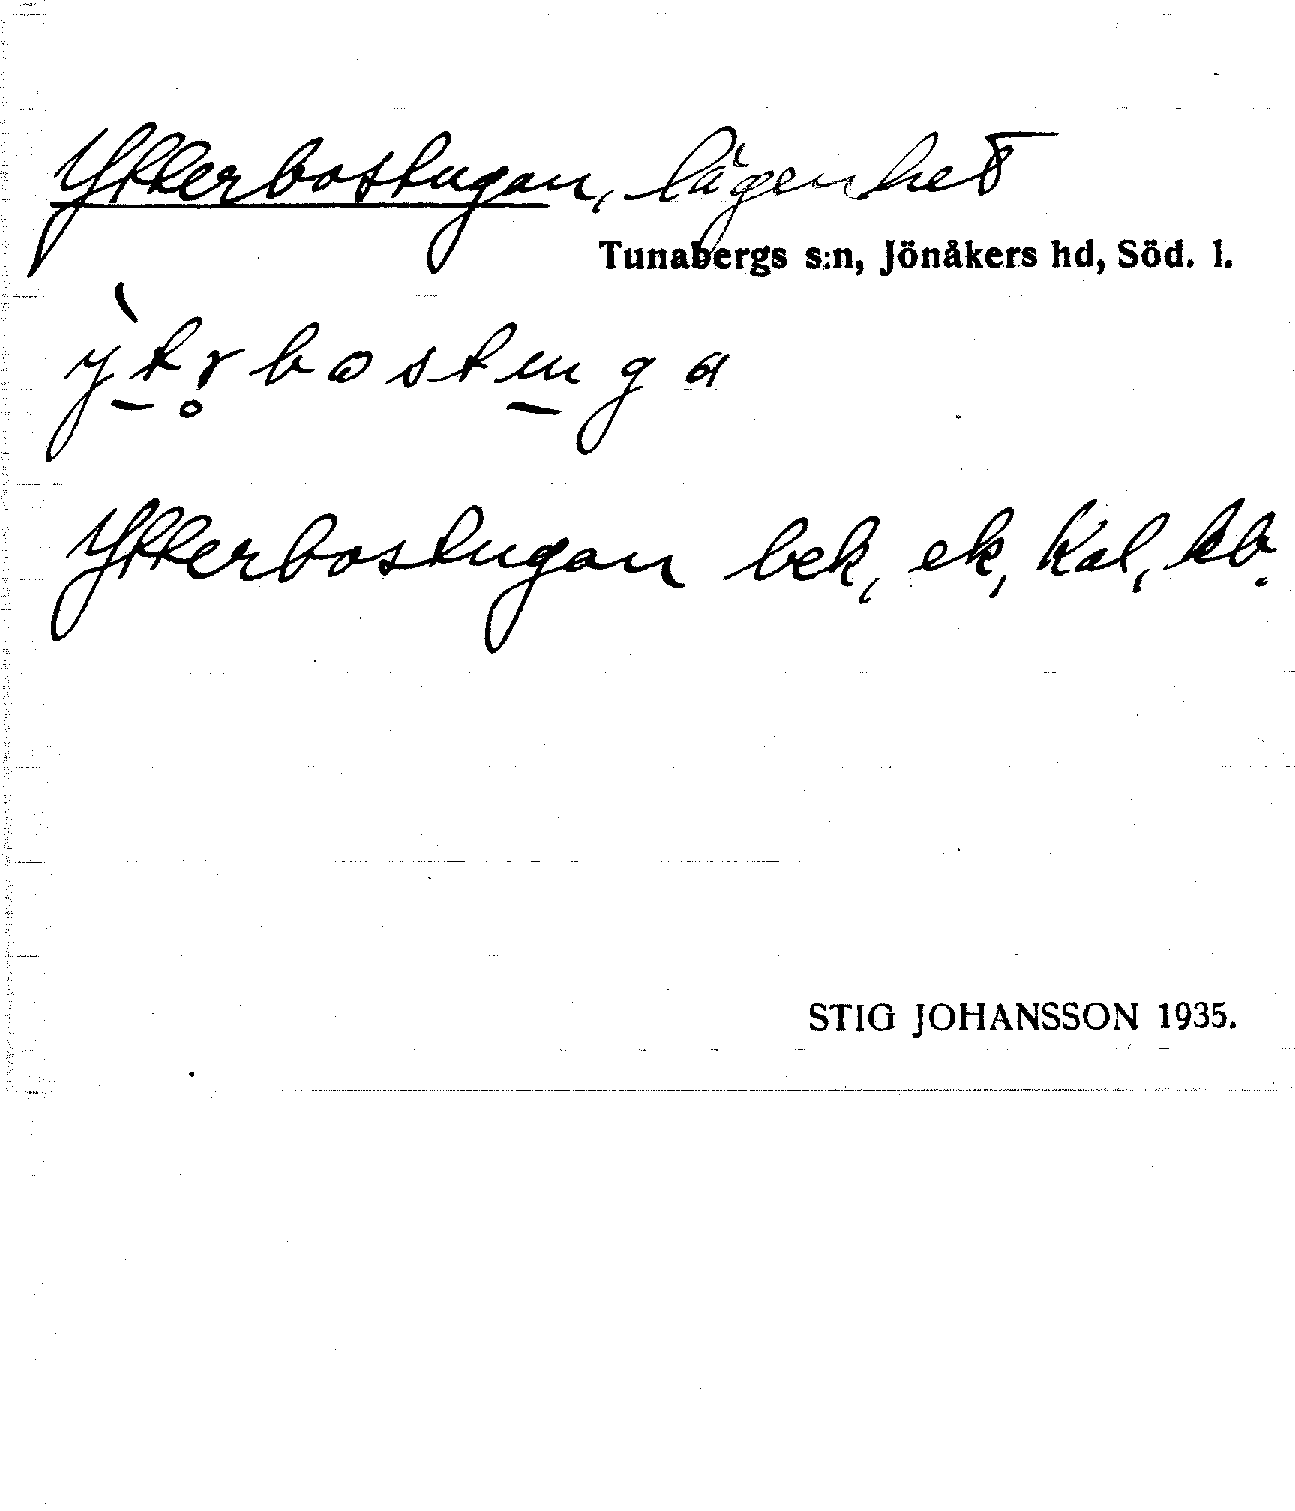 Ytterbostugan, lägenhet
Tunabergs s:n, Jönåkers hd, Söd. l.
ỳtr̥bostuga
Ytterbostugan bek, ek, kal, kb.
STIG JOHANSSON 1935.